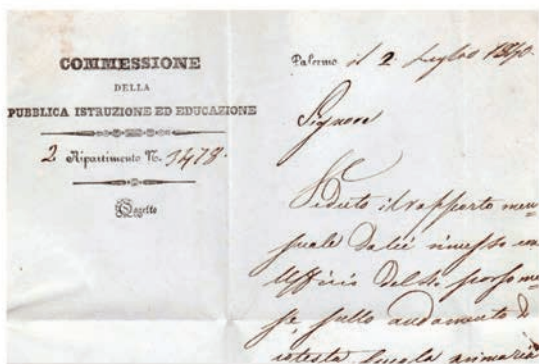 COMMESSIONE
DELLA
PUBBLICA ISTRUZIONE ED EDUCAZIONE
2 Ripartimento N. 3478.
Oggetto
Palermo il 2 Luglio 1840.
Signore
Veduto il rapporto men=
suale da lei rimesso con
Ufficio del 30 scorso me=
se sullo andamento di
cotesta scuola primaria